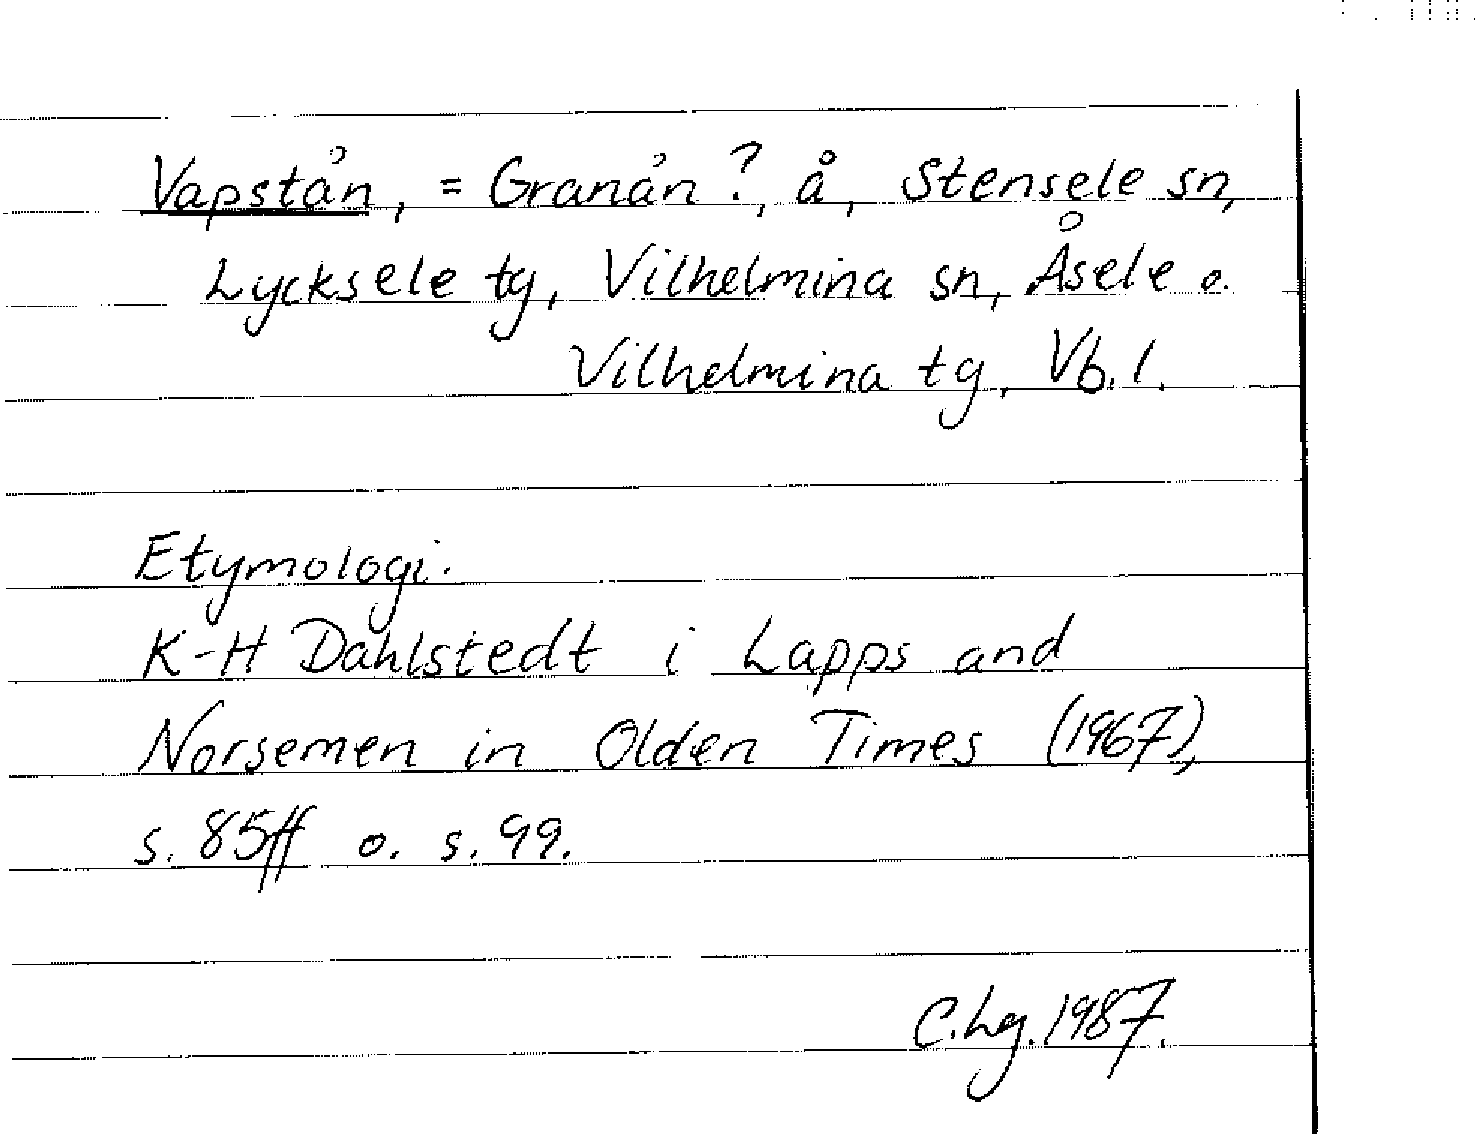 Vapstån, = Granån ?, å, Stensele sn,
Lycksele tg, Vilhelmina sn, Åsele o.
Vilhelmina tg, Vb. l.
Etymologi.
K-H Dahlstedt i Lapps and
Norsemen in Olden Times (1967),
s. 85ff o. s. 99.
C. Lg. 1987.